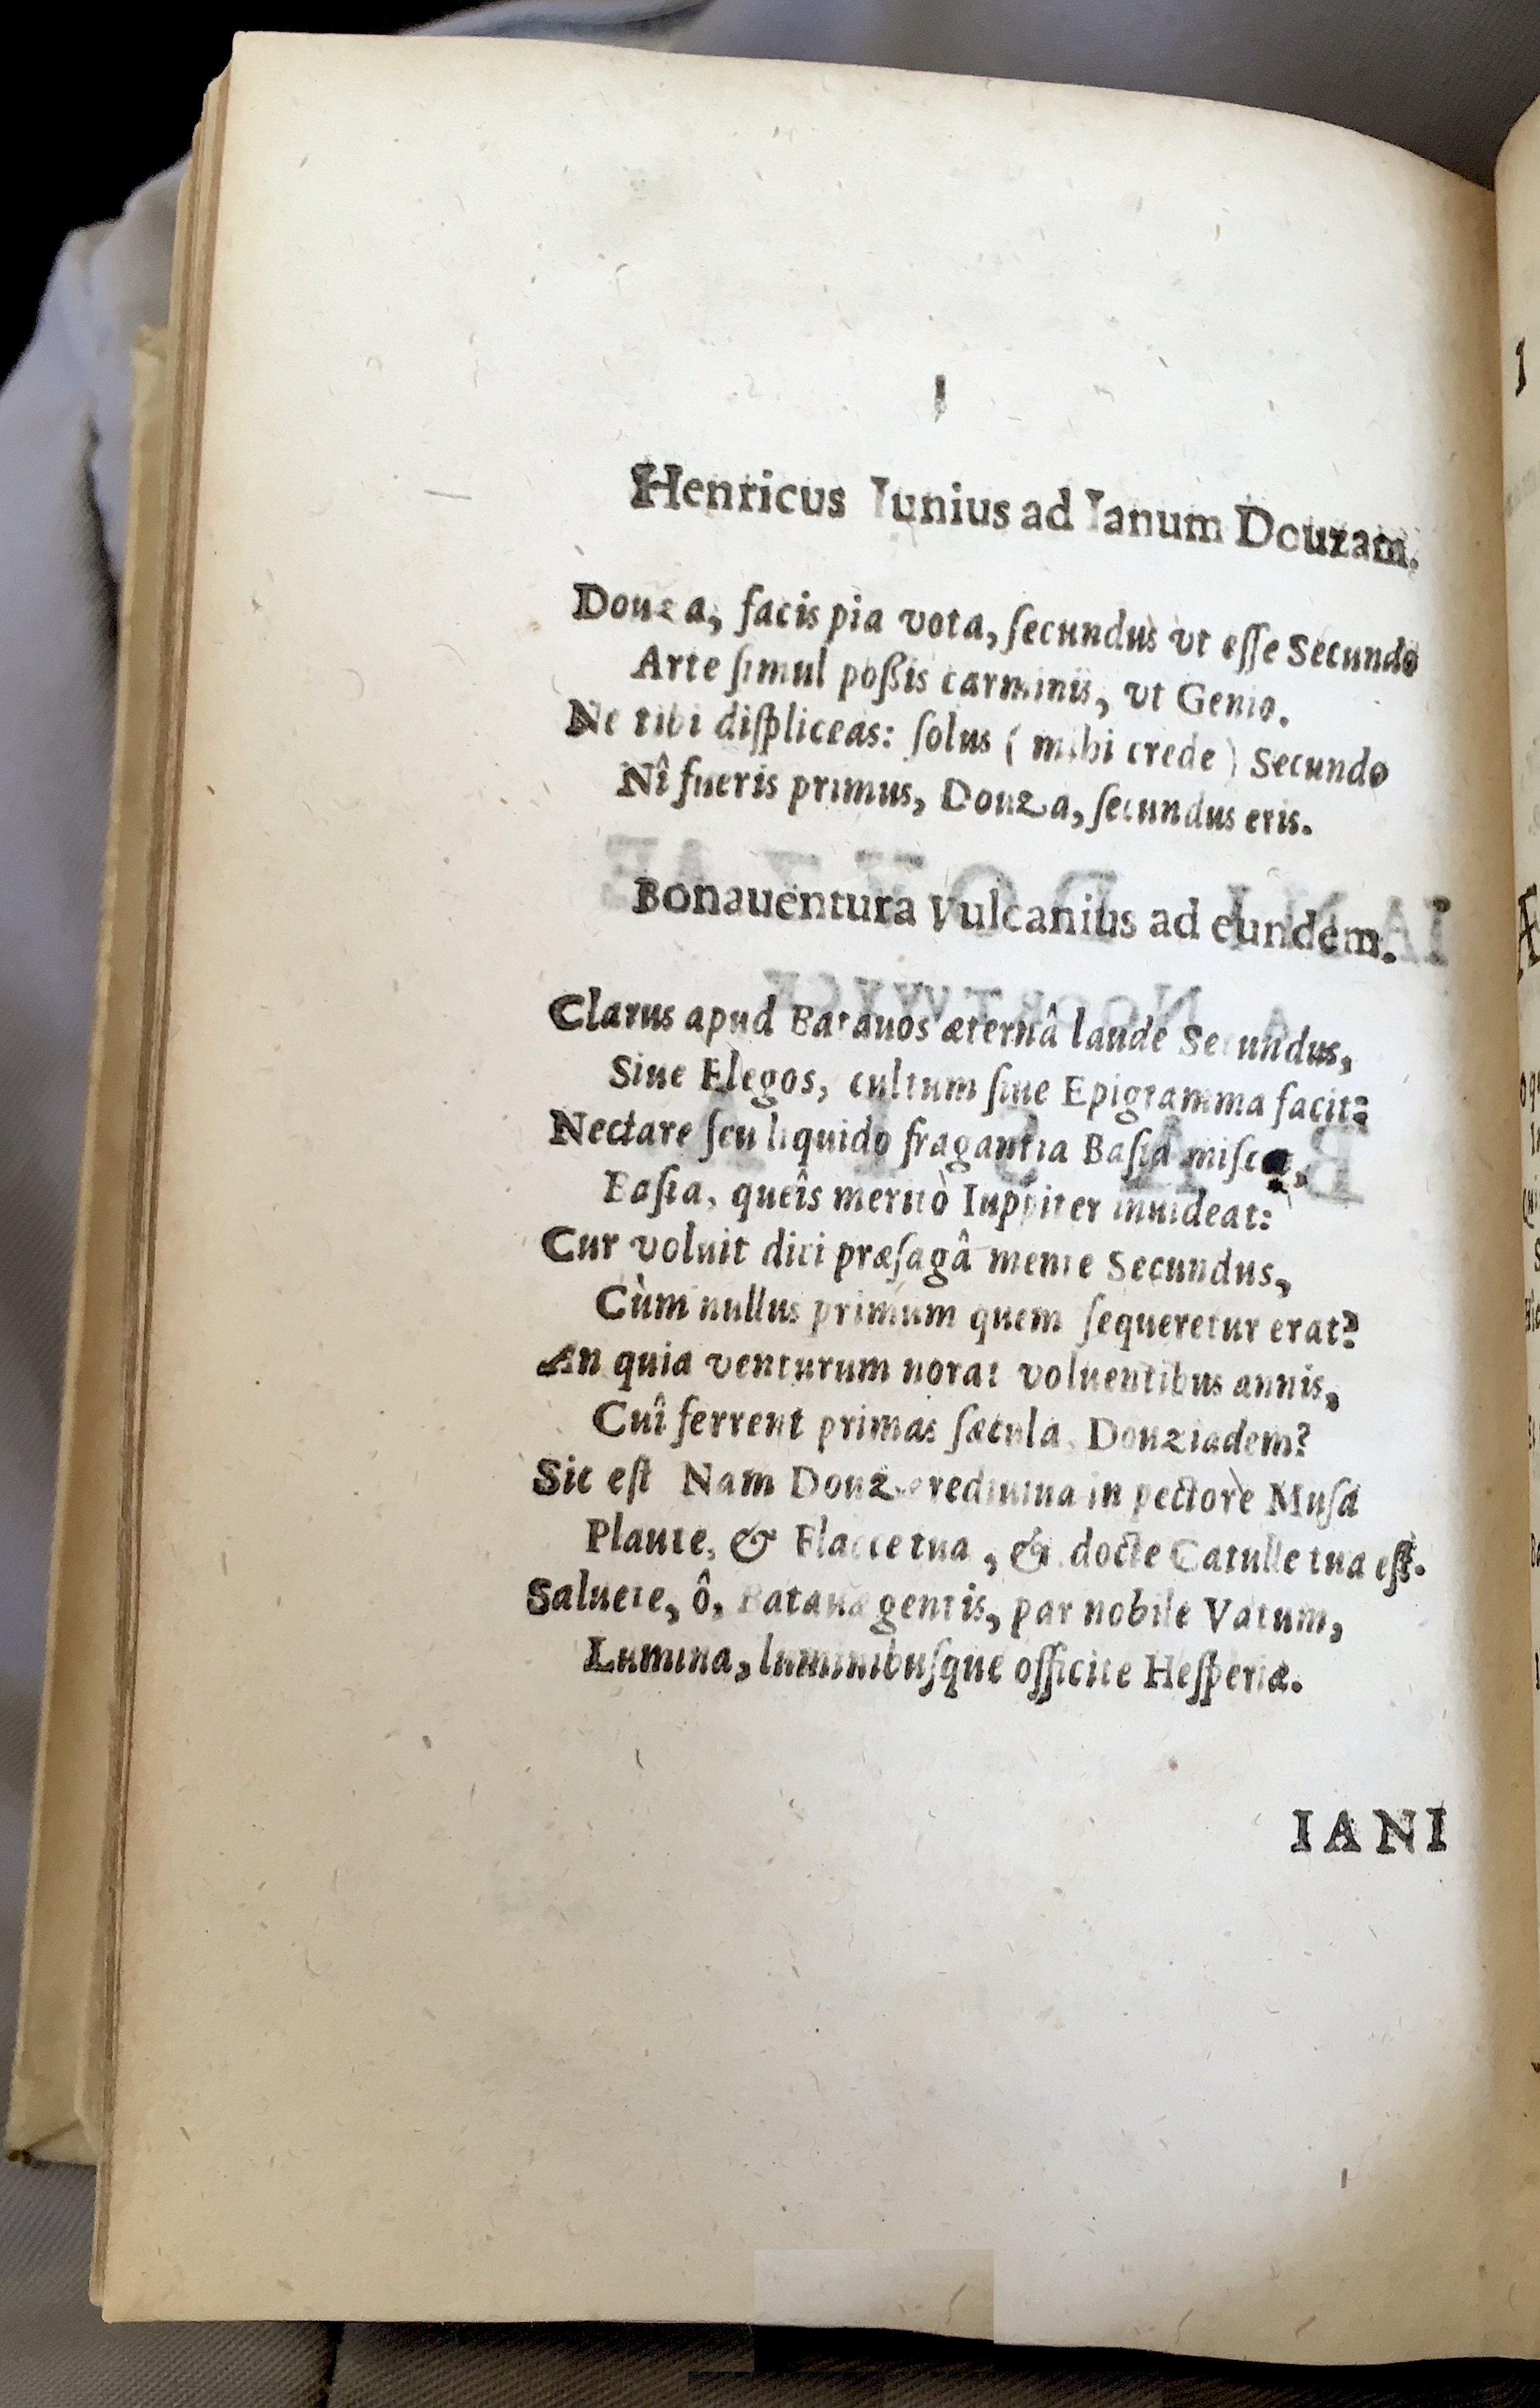 Henricus Iunius ad Ianum Douzam.
Douza, facis pia vota, ſecundus vt eſſe Secundo
Arte ſimul poßis carminis, vt Genio.
Ne tibi diſpliceas: ſolus ( mihi crede ) Secundo
Nî fueris primus, Douza, ſecundus eris.
Bonauentura Vulcanius ad eundem.
Clarus apud Batauos æternâ laude Secundus,
Siue Elegos, cultum ſiue Epigramma facit:
Nectare ſeu liquido fragantia Baſia
Baſia, queîs meritò Iuppiter inuideat:
Cur voluit dici præſagâ mente Secundus,
Cùm nullus primum quem ſequeretur erat?
An quia venturum norat voluentibus annis,
Cuî ferrent primas ſæcula, Douziadem?
Sic eſt Nam Douzæ rediuiua in pectore Muſa
Plaute, & Flacce tua, & docte Catulle tua eſt.
Saluete, ô, Batauæ gentis, par nobile Vatum,
Lumina, luminibuſque officite Heſperiæ.
IANI